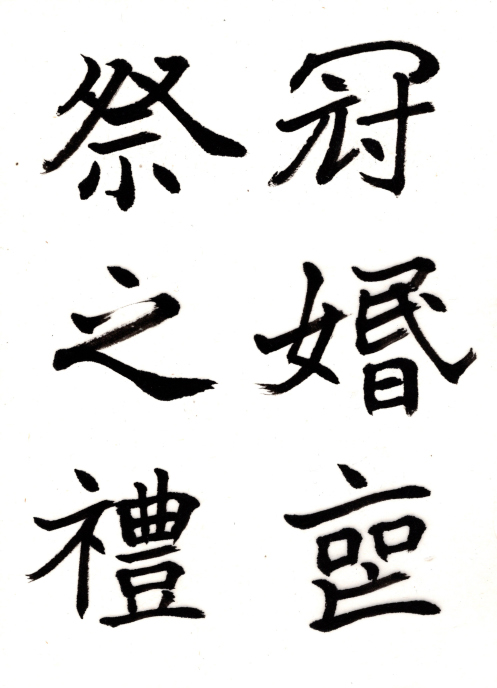 冠婚喪
祭之禮